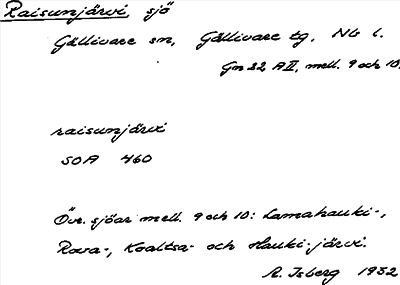 Raisunjärvi, sjö
Gällivare sn, Gällivare tg, Nb l.
Gn 22 AII, mell. 9 och 10.
raisunjärvi
SOA 460
Övr. sjöar mell. 9 och 10: Lamahauki-,
Rova-, Koaltsa- och Hauki-järvi.
R. Isberg 1932